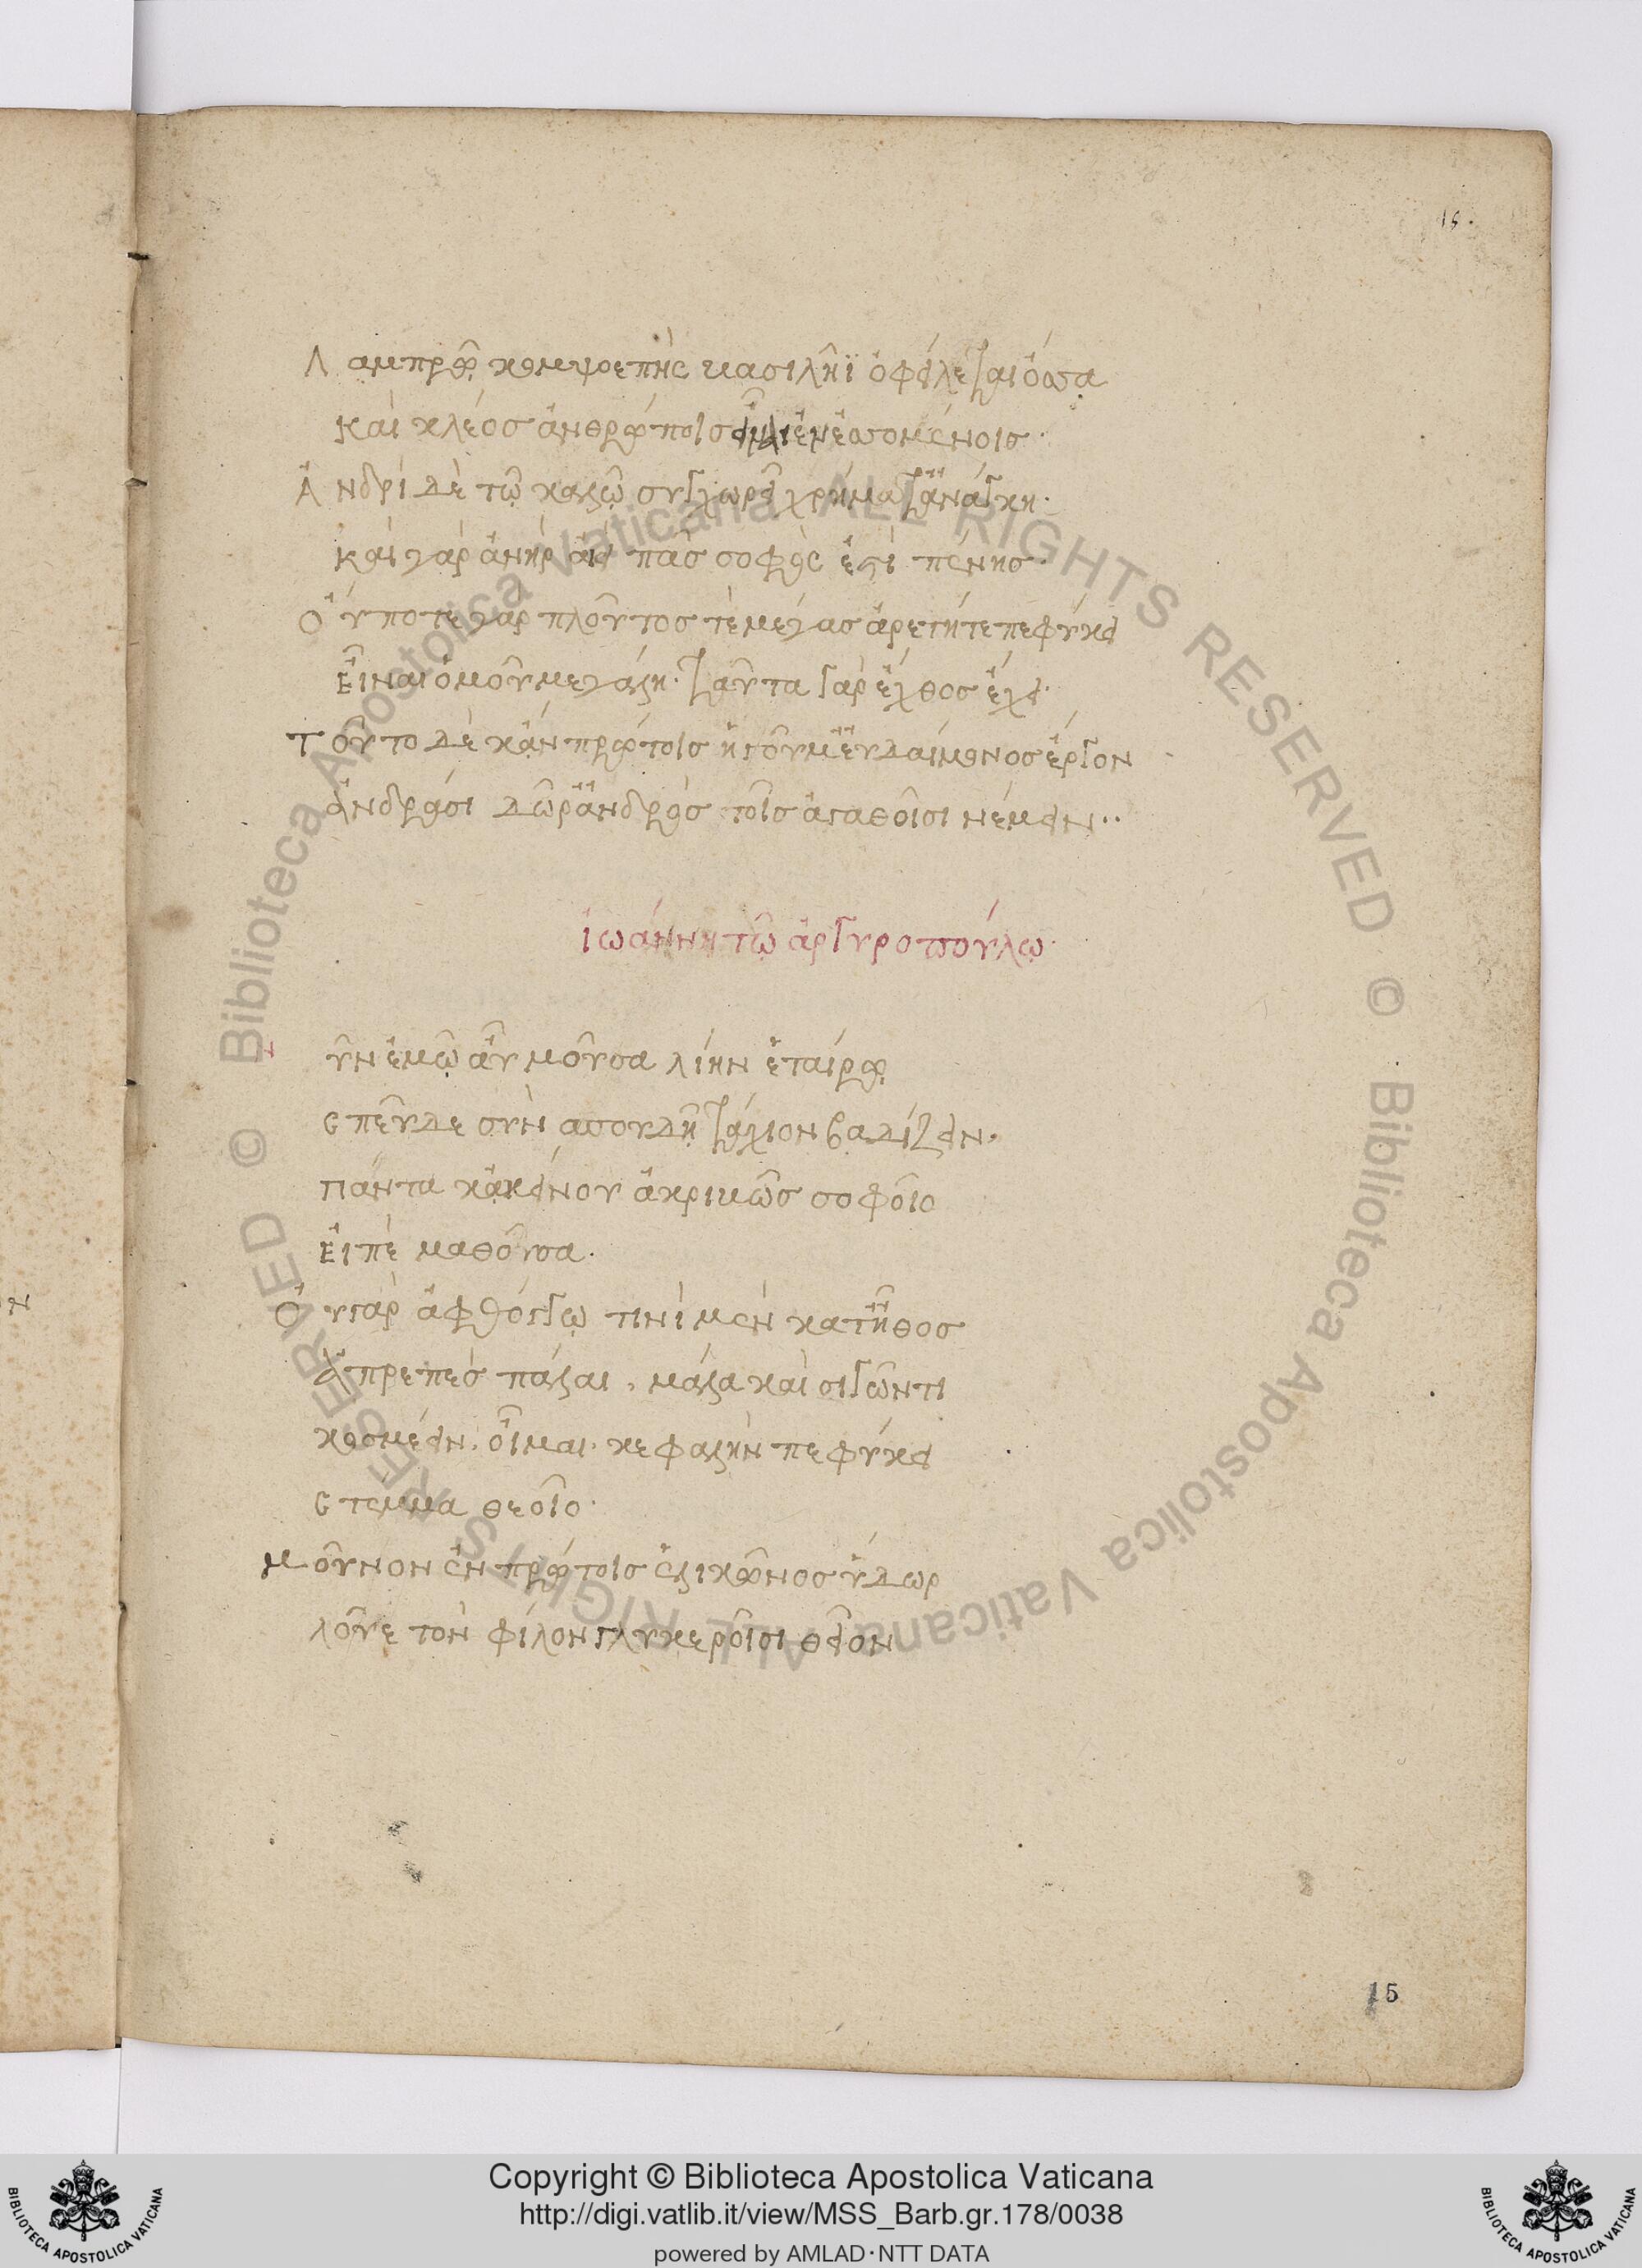 15.
Λαμπρῷ κομψοεπὴς βασιλῆϊ ὀφείλεται ὄσσα
καὶ κλέος ἀνθρώποις ἐν ἐπεσσομένοις·
Ἀνδρὶ δὲ τῷ καλῷ συγχωρεῖ χρήματ' ἀνάγκη·
καὶ γὰρ ἀνὴρ ἀεὶ πᾶς σοφὸς ἐστὶ πένης·
Οὔποτε γὰρ πλοῦτος τὲ μέγας ἀρετήτε πεφύκει
Εἶναι ὁμοῦ μεγάλη· ταῦτα γὰρ ἔχθος ἔχει·
Τοῦτο δὲ κἂν πρώτοις ἡγοῦμ' ἐυδαίμονος ἔργον
ἀνδράσι δῶρ' ἀνδρὸς τοῖς ἀγαθοῖσι νέμειν··
ἰωάννη τῷ ἀργυροπούλῳ·
ῦν ἐμῷ ἂυ μοῦσα λίην ἑταίρῳ
Σπεῦδε σὺν σπουδῇ τάχιον βαδίζειν·
Πάντα κἀκείνου ἀκριβῶς σοφοῖο
Εἰπὲ μαθοῦσα·
Οὐ γὰρ ἀφθόγγῳ τινὶ μὲν κατ' ἦθος
ἀπρεπὲς πάλαι, μάλα καὶ σιγῶντι
κοσμέειν· οἶμαι· κεφαλὴν πεφύκει
Στέμμα θεοῖο·
Μοῦνον ἐν πρώτοις ἑλικῶνος ὕδωρ
λοῦε τὸν φίλον γλυκεροῖσι θεῖον
15
Copyright © Biblioteca Apostolica Vaticana
http://digi.vatlib.it/view/MSS_Barb.gr.178/0038
powered by AMLAD·NTT DATA
© Biblioteca Apostolica Vaticana ALL RIGHTS RESERVED © Biblioteca Apostolica Vaticana ALL RIGHTS RESERVED
BIBLIOTECA APOSTOLICA VATICANA
BIBLIOTECA APOSTOLICA VATICANA